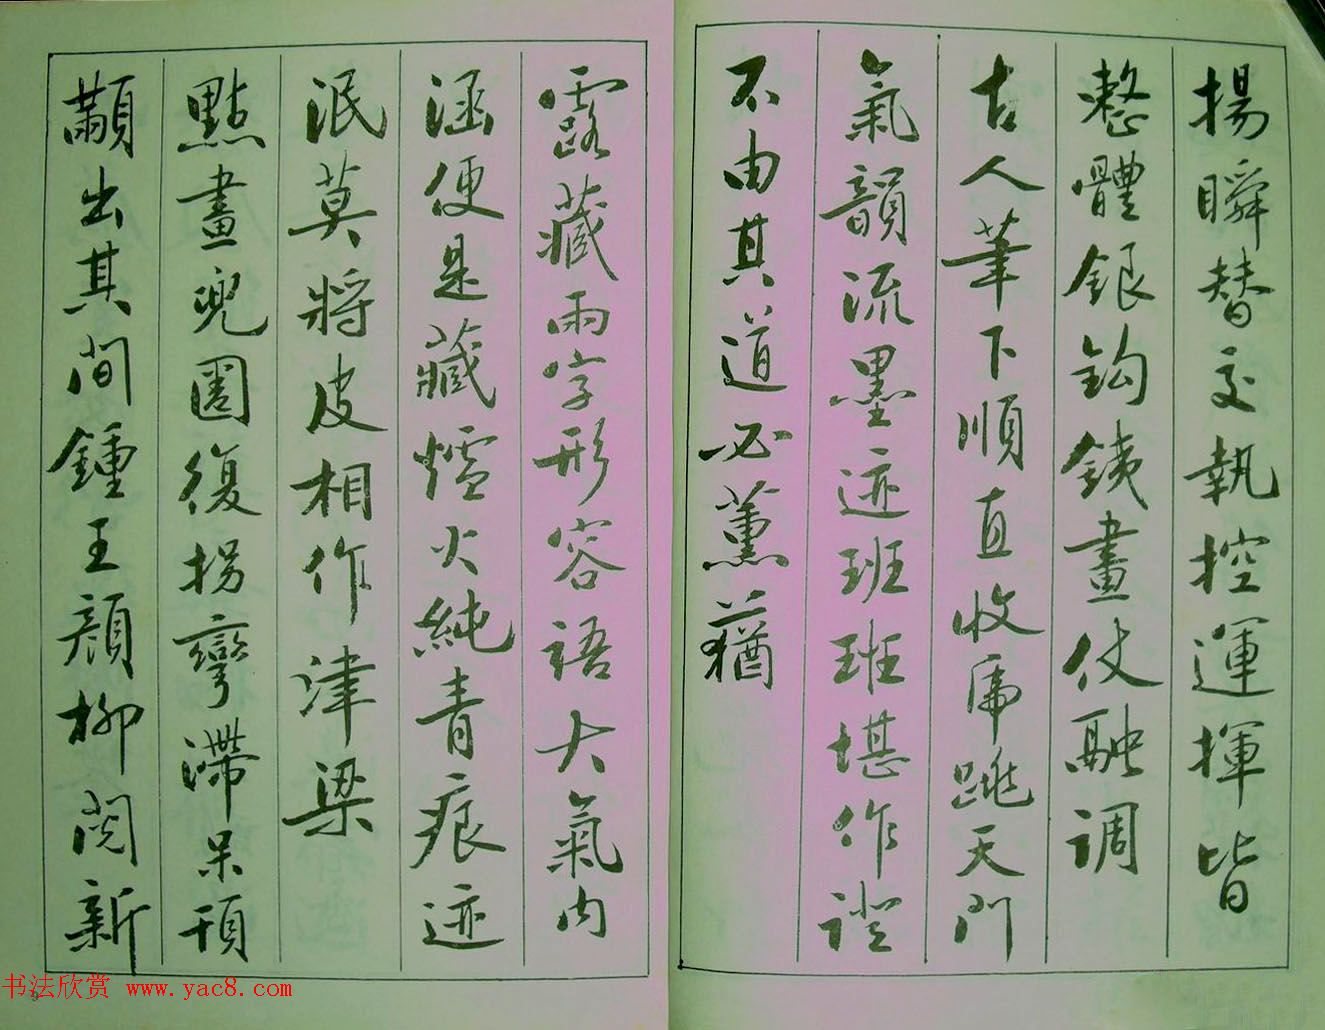 揚瞬替交執控運揮皆
整體銀鈎鐵畫仗融调
古人筆下順直收虎跳天门
氣韻流墨迹班班堪作證
不由其道必薰蕕
露藏兩字形容語大氣内
涵便是藏爐火純青痕迹
泯莫將皮相作津梁
點畫兜圈復拐彎滯呆頑
顢出其间鍾王顔柳閱新
书法欣赏 www.yac8.com
9